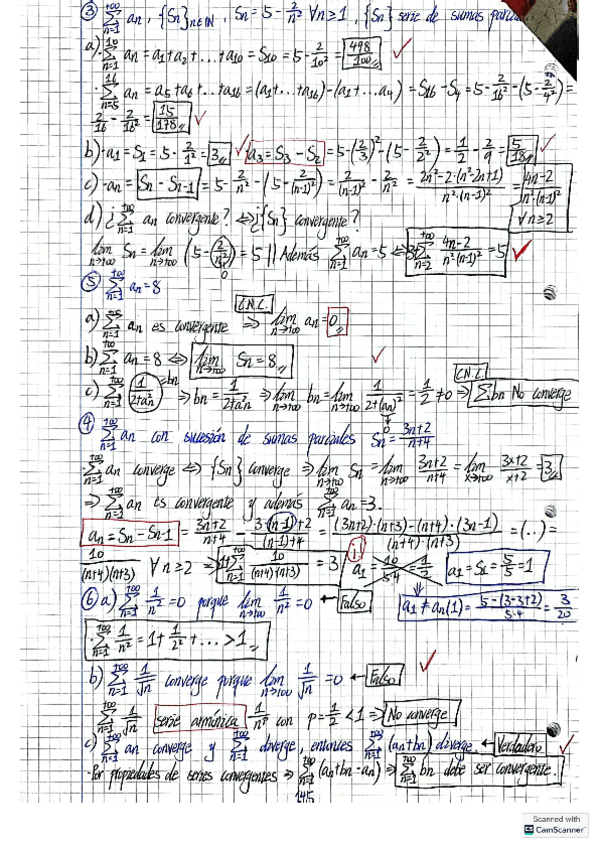 ③ ∑_{n=1}^{+∞} an, {Sn}_{n∈ℕ}, Sn = 5 - 2/n² ∀n≥1, {Sn} serie de sumas parciales
a) · ∑_{n=1}^{10} an = a1 + a2 + ... + a10 = S10 = 5 - 2/10² = 498/100
· ∑_{n=5}^{16} an = a5 + a6 + ... + a16 = (a1 + ... + a16) - (a1 + ... a4) = S16 - S4 = 5 - 2/16² - (5 - 2/4²) =
2/16 - 2/16² = 15/128
b) · a1 = S1 = 5 - 2/1² = 3 a3 = S3 - S2 = 5 - (2/3)² - (5 - 2/2²) = 1/2 - 2/9 = 5/18
c) · an = Sn - Sn-1 = 5 - 2/n² - (5 - 2/(n-1)²) = 2/(n-1)² - 2/n² = 2n² - 2·(n²-2n+1)/n²·(n-1)² = 4n-2/n²·(n-1)² ∀n≥2
d) ¿∑_{n=1}^{+∞} an convergente? ⇔ ¿{Sn} convergente?
lim_{n→+∞} Sn = lim_{n→+∞} (5 - 2/n²) = 5 || Además ∑_{n=1}^{+∞} an = 5 ⇔ 3+∑_{n=2}^{+∞} 4n-2/n²(n-1)² = 5
0
⑤ ∑_{n=1}^{+∞} an = 8
C.N.C.
a) ∑_{n=1}^{+∞} an es convergente ⇒ lim_{n→+∞} an = 0
b) ∑_{n=1}^{+∞} an = 8 ⇔ lim_{n→+∞} Sn = 8
C.N.C.
c) ∑_{n=1}^{+∞} (1/2+a²n) = bn ⇒ bn = 1/2+a²n ⇒ lim_{n→+∞} bn = lim_{n→+∞} 1/2+(an)² = 1/2 ≠ 0 ⇒ ∑bn No converge
0
④ ∑_{n=1}^{+∞} an con sucesión de sumas parciales Sn = 3n+2/n+4
· ∑_{n=1}^{+∞} an converge ⇔ {Sn} converge ⇒ lim_{n→+∞} Sn = lim_{n→+∞} 3n+2/n+4 = lim_{x→+∞} 3x+2/x+2 = 3
⇒ ∑_{n=1}^{+∞} an es convergente y además ∑_{n=1}^{+∞} an = 3.
an = Sn - Sn-1 = 3n+2/n+4 - 3·(n-1)+2/(n-1)+4 = (3n+2)·(n+3)-(n+4)·(3n-1)/(n+4)·(n+3) = (..) =
10/(n+4)(n+3) ∀n≥2 ⇒ 1+∑_{n=2}^{+∞} 10/(n+4)·(n+3) = 3 a1 = 10/5·4 = 1/2 a1 = S1 = 5/5 = 1
⑥ a) ∑_{n=1}^{+∞} 1/n² = 0 porque lim_{n→+∞} 1/n² = 0 ← Falso a1 ≠ an(1) = 5-(3-3+2)/5·4 = 3/20
· ∑_{n=1}^{+∞} 1/n² = 1 + 1/2² + ... > 1
b) ∑_{n=1}^{+∞} 1/√n converge porque lim_{n→+∞} 1/√n = 0 ← Falso
∑_{n=1}^{+∞} 1/√n serie armónica 1/n^p con p = 1/2 < 1 ⇒ No converge
c) ∑_{n=1}^{+∞} an converge y ∑_{n=1}^{+∞} diverge, entonces ∑_{n=1}^{+∞} (an+bn) diverge ← Verdadero
· Por propiedades de series convergentes ⇒ ∑_{n=1}^{+∞} (an+bn-an) ⇒ ∑_{n=1}^{+∞} bn debe ser convergente.
145
Scanned with
CS CamScanner